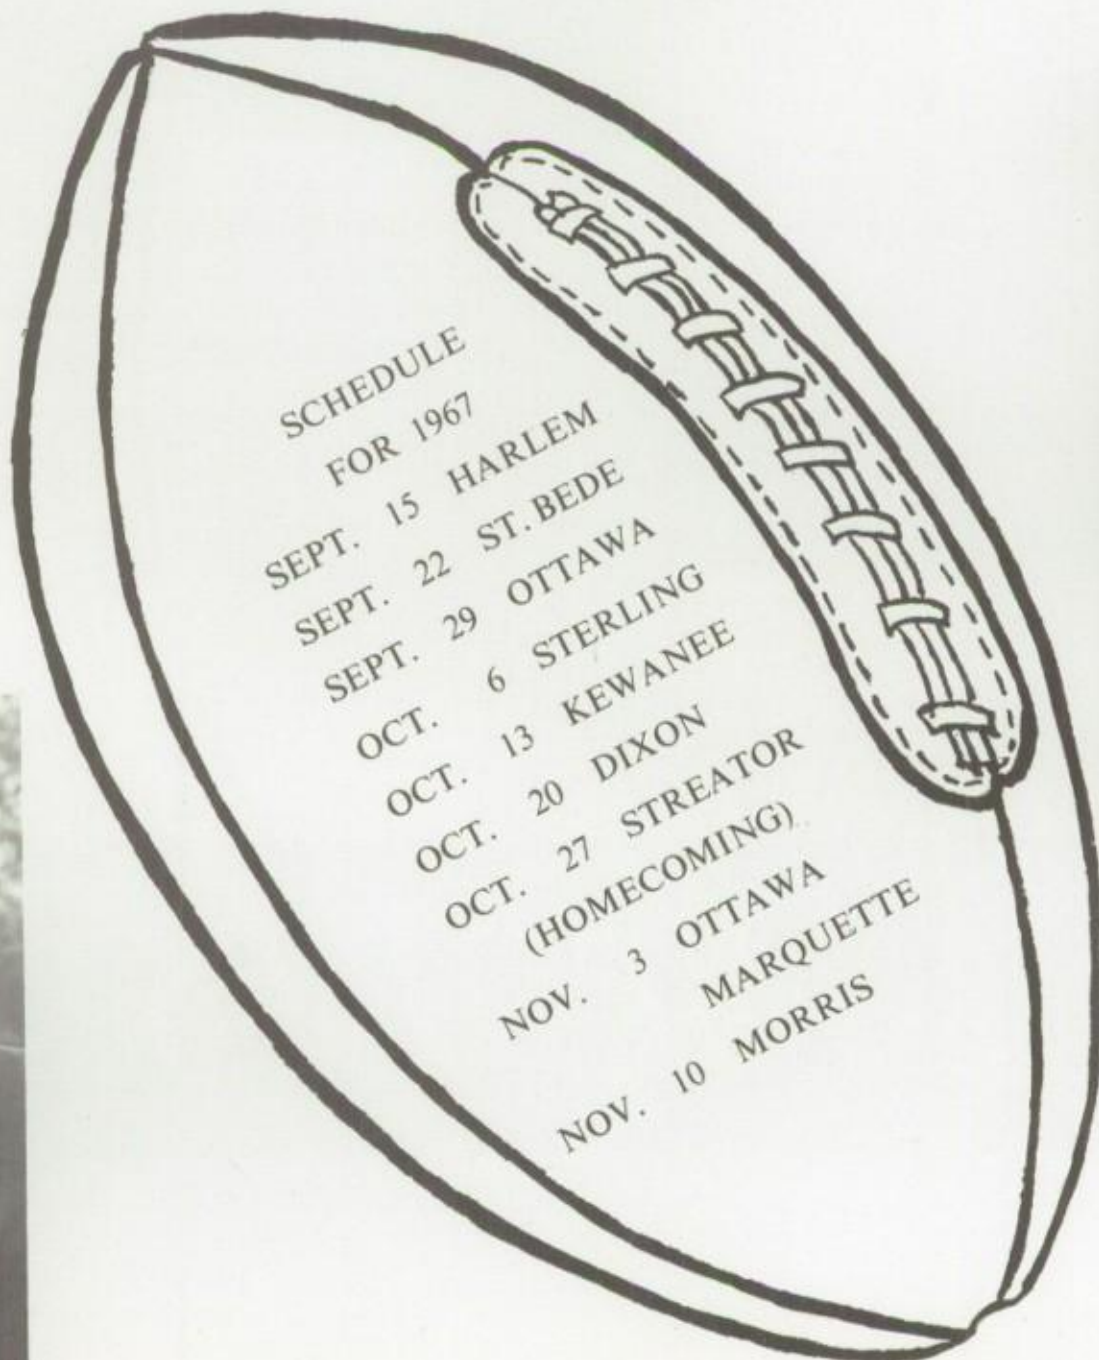 SCHEDULE
FOR 1967
SEPT. 15 HARLEM
SEPT. 22 ST. BEDE
SEPT. 29 OTTAWA
OCT. 6 STERLING
OCT. 13 KEWANEE
OCT. 20 DIXON
OCT. 27 STREATOR
(HOMECOMING)
NOV. 3 OTTAWA
MARQUETTE
NOV. 10 MORRIS